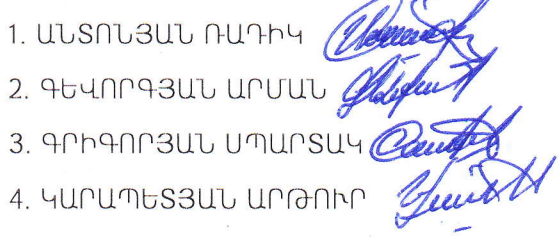 1. ԱՆՏՈՆՅԱՆ ՌԱԴԻԿ
2. ԳԵՎՈՐԳՅԱՆ ԱՐՄԱՆ
3. ԳՐԻԳՈՐՅԱՆ ՍՊԱՐՏԱԿ
4. ԿԱՐԱՊԵՏՅԱՆ ԱՐԹՈՒՐ